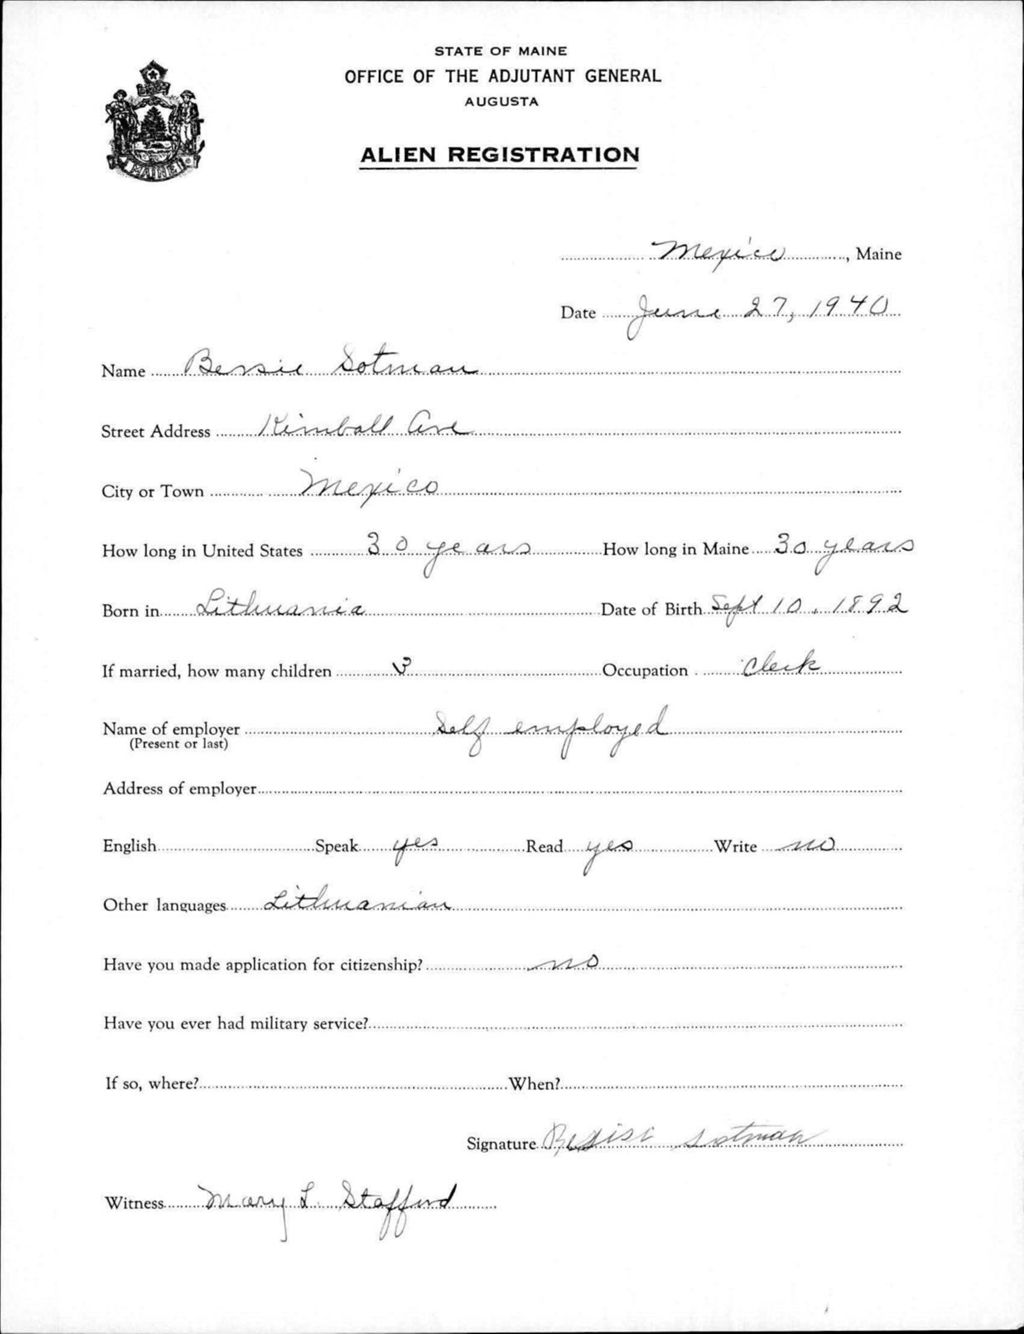 STATE OF MAINE
OFFICE OF THE ADJUTANT GENERAL
AUGUSTA
ALIEN REGISTRATION
MAINE
Mexico, Maine
Date June 27, 1940
Name Bessie Sotman
Street Address Kimball Ave
City or Town Mexico
How long in United States 30 years How long in Maine 30 years
Born in Lithuania Date of Birth Sept 10, 1892
If married, how many children 3 Occupation Clerk
Name of employer Self employed
(Present or last)
Address of employer
English Speak yes Read yes Write no
Other languages Lithuanian
Have you made application for citizenship? no
Have you ever had military service?
If so, where? When?
Signature Bessie Sotman
Witness Mary L. Stafford